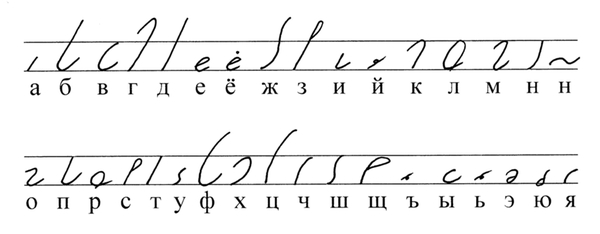 а б в г д е ё ж з и й к л м н н
о п р с т у ф х ц ч ш щ ъ ы ь э ю я